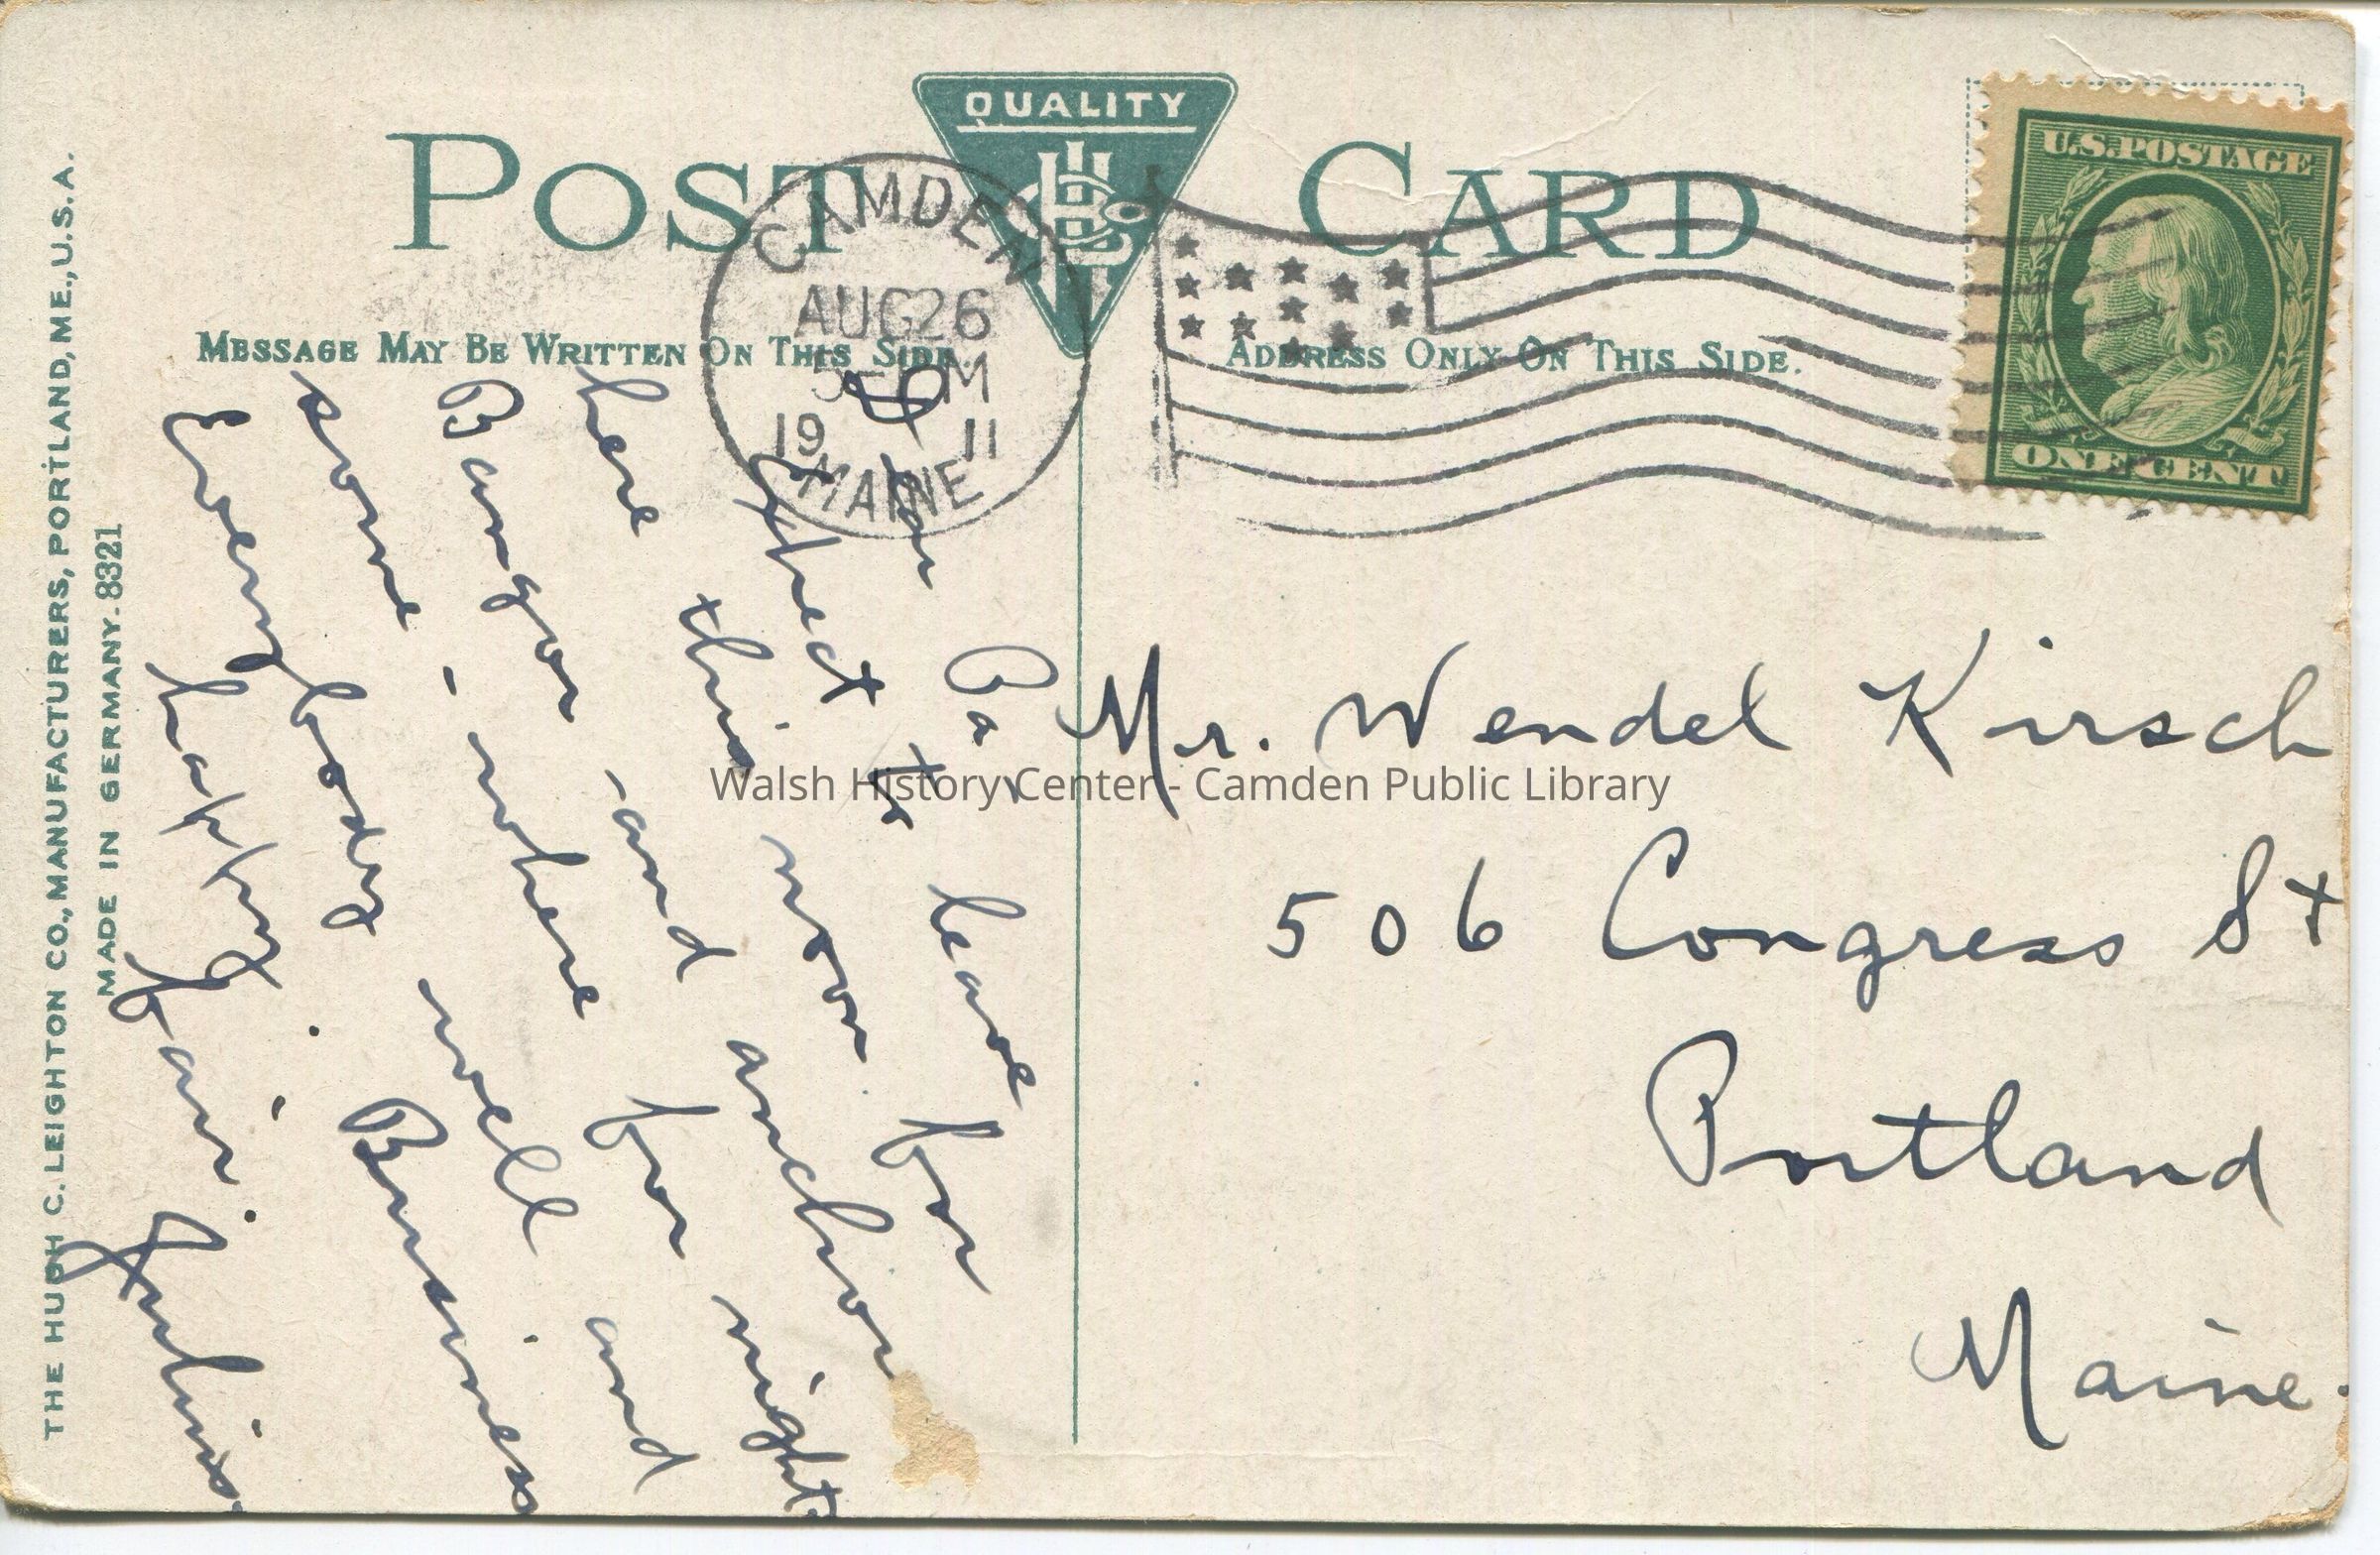 POST CARD
QUALITY
HCL Co
U.S. POSTAGE
ONE CENT
CAMDEN
AUG 26
PM
19 11
MAINE
MESSAGE MAY BE WRITTEN ON THIS SIDE
ADDRESS ONLY ON THIS SIDE.
Dear Pa,
Expect to leave
here this noon for
Bangor - and anchor
some-where for night.
Everybody well and
happy. Business
fair. Julius
Mr. Wendel Kirsch
506 Congress St
Portland
Maine.
THE HUGH C. LEIGHTON CO., MANUFACTURERS, PORTLAND, ME., U.S.A.
MADE IN GERMANY. 8321
Walsh History Center - Camden Public Library